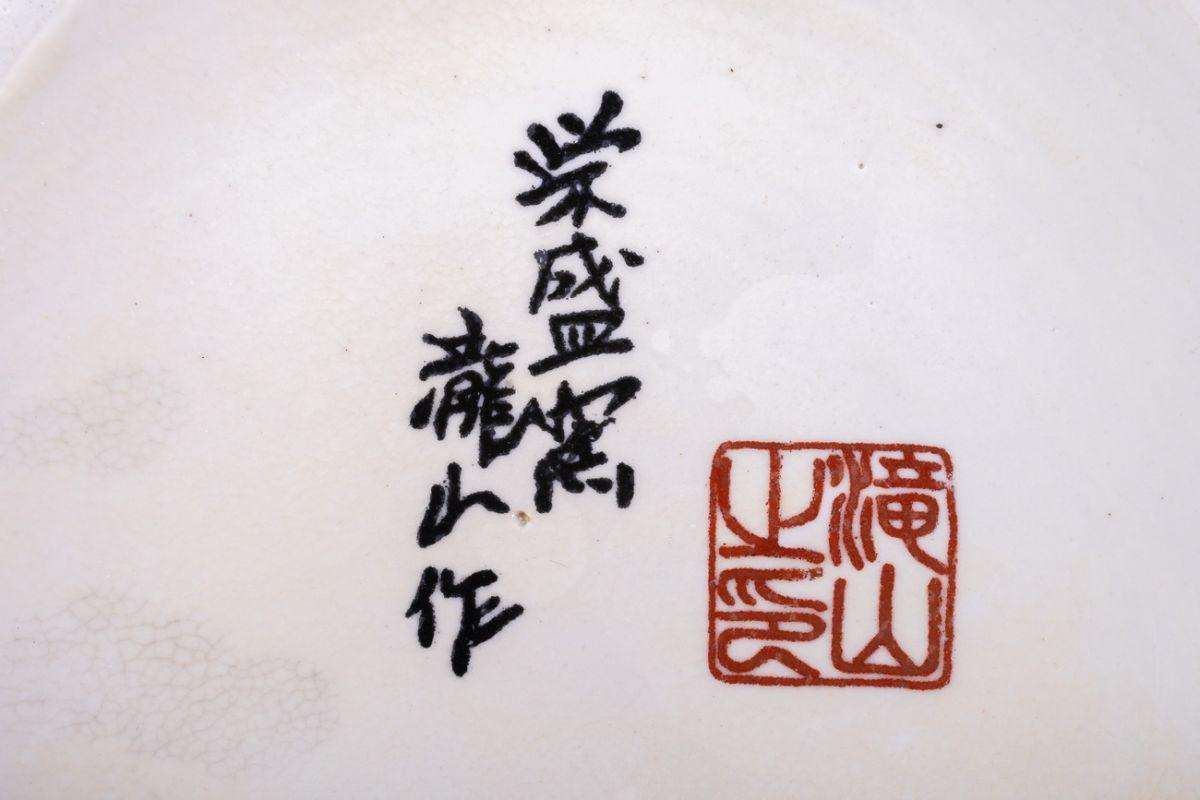 栄盛窯
瀧山作
滝山
之印